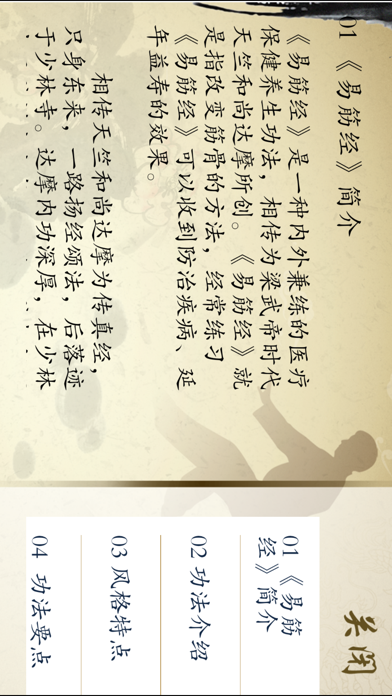 01 《易筋经》简介
《易筋经》是一种内外兼练的医疗
保健养生功法，相传为梁武帝时代
天竺和尚达摩所创。《易筋经》就
是指改变筋骨的方法，经常练习
《易筋经》可以收到防治疾病、延
年益寿的效果。
相传天竺和尚达摩为传真经，
只身东来，一路扬经颂法，后落迹
于少林寺。达摩内功深厚，在少林
关闭
01《易筋
经》简介
02 功法介绍
03 风格特点
04 功法要点